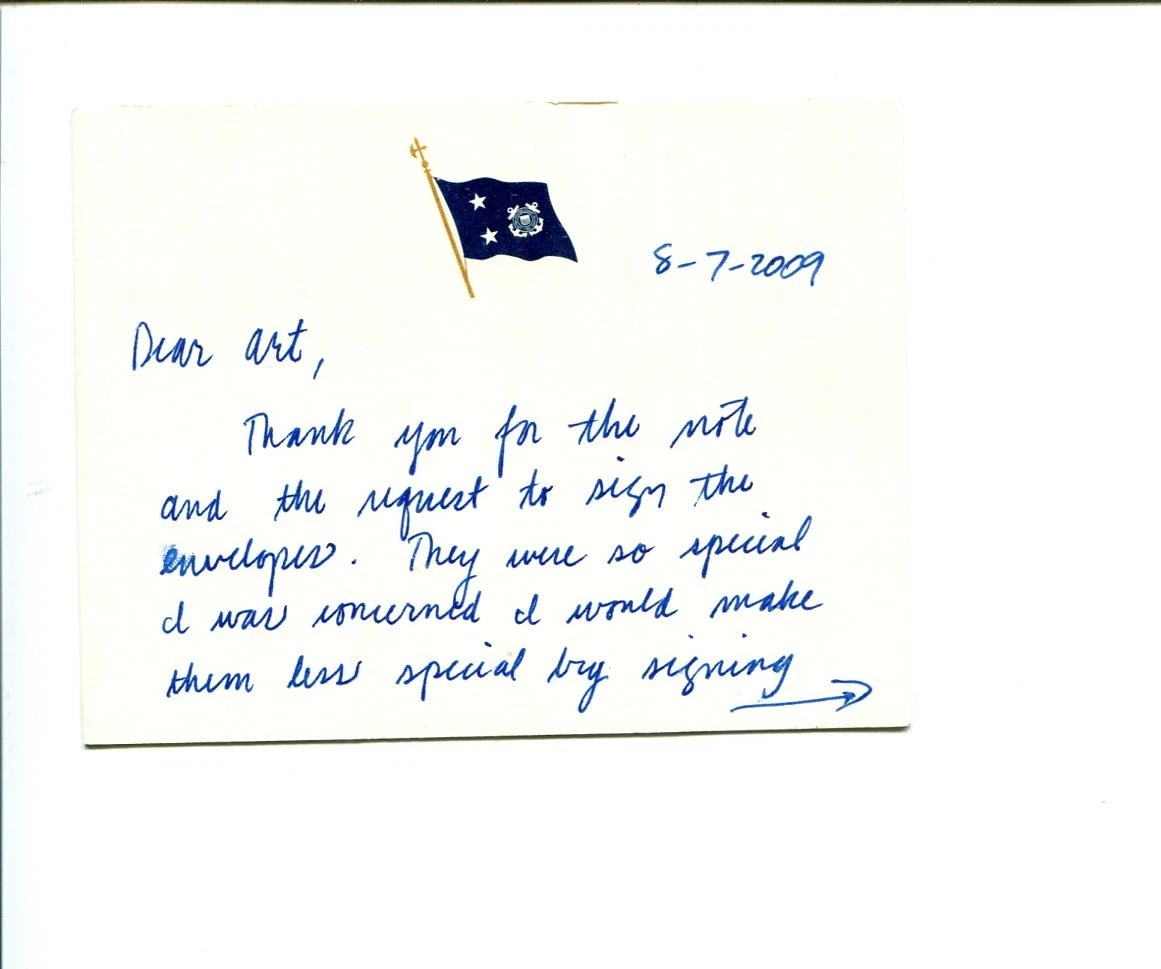 8-7-2009
Dear Art,
Thank you for the note
and the request to sign the
envelopes. They were so special
I was concerned I would make
them less special by signing